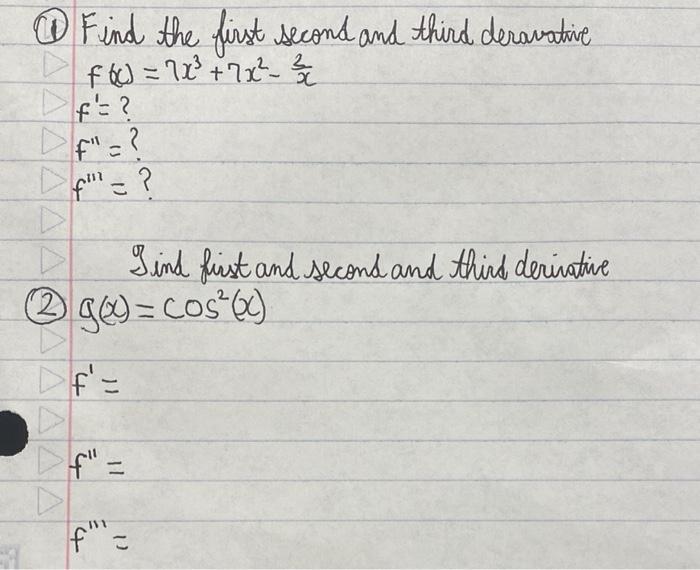 ① Find the first second and third deravative
f(x) = 7x³ + 7x² - 2/x
f' = ?
f'' = ?
f''' = ?
Find first and second and third derivative
② g(x) = cos²(x)
f' =
f'' =
f''' =